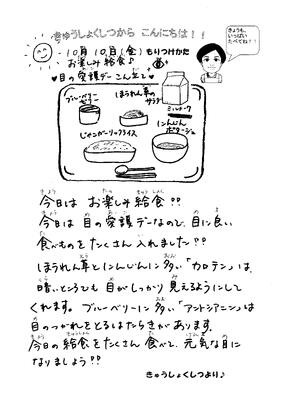 きゅうしょくしつから こんにちは!!
きょうも、
いっぱい
たべてね!!
10月10日(金)もりつけかた
お楽しみ給食♪
♥目の愛護デーこんだて♥
ブルーベリー
ゼリー
ほうれん草の
サラダ
ミルメーク
じゃンガーリックライス
にんじん
ポタージュ
今日は お楽しみ給食!!
今日は 目の愛護デーなので、目に良い
食べものをたくさん入れました!!
ほうれん草とにんじんに多い「カロテン」は、
暗いところでも 目がしっかり見えるようにして
くれます。ブルーベリーに多い「アントシアニン」は
目のつかれをとるはたらきがあります。
今日の給食をたくさん食べて、元気な目に
なりましょう!!
きゅうしょくしつより♪